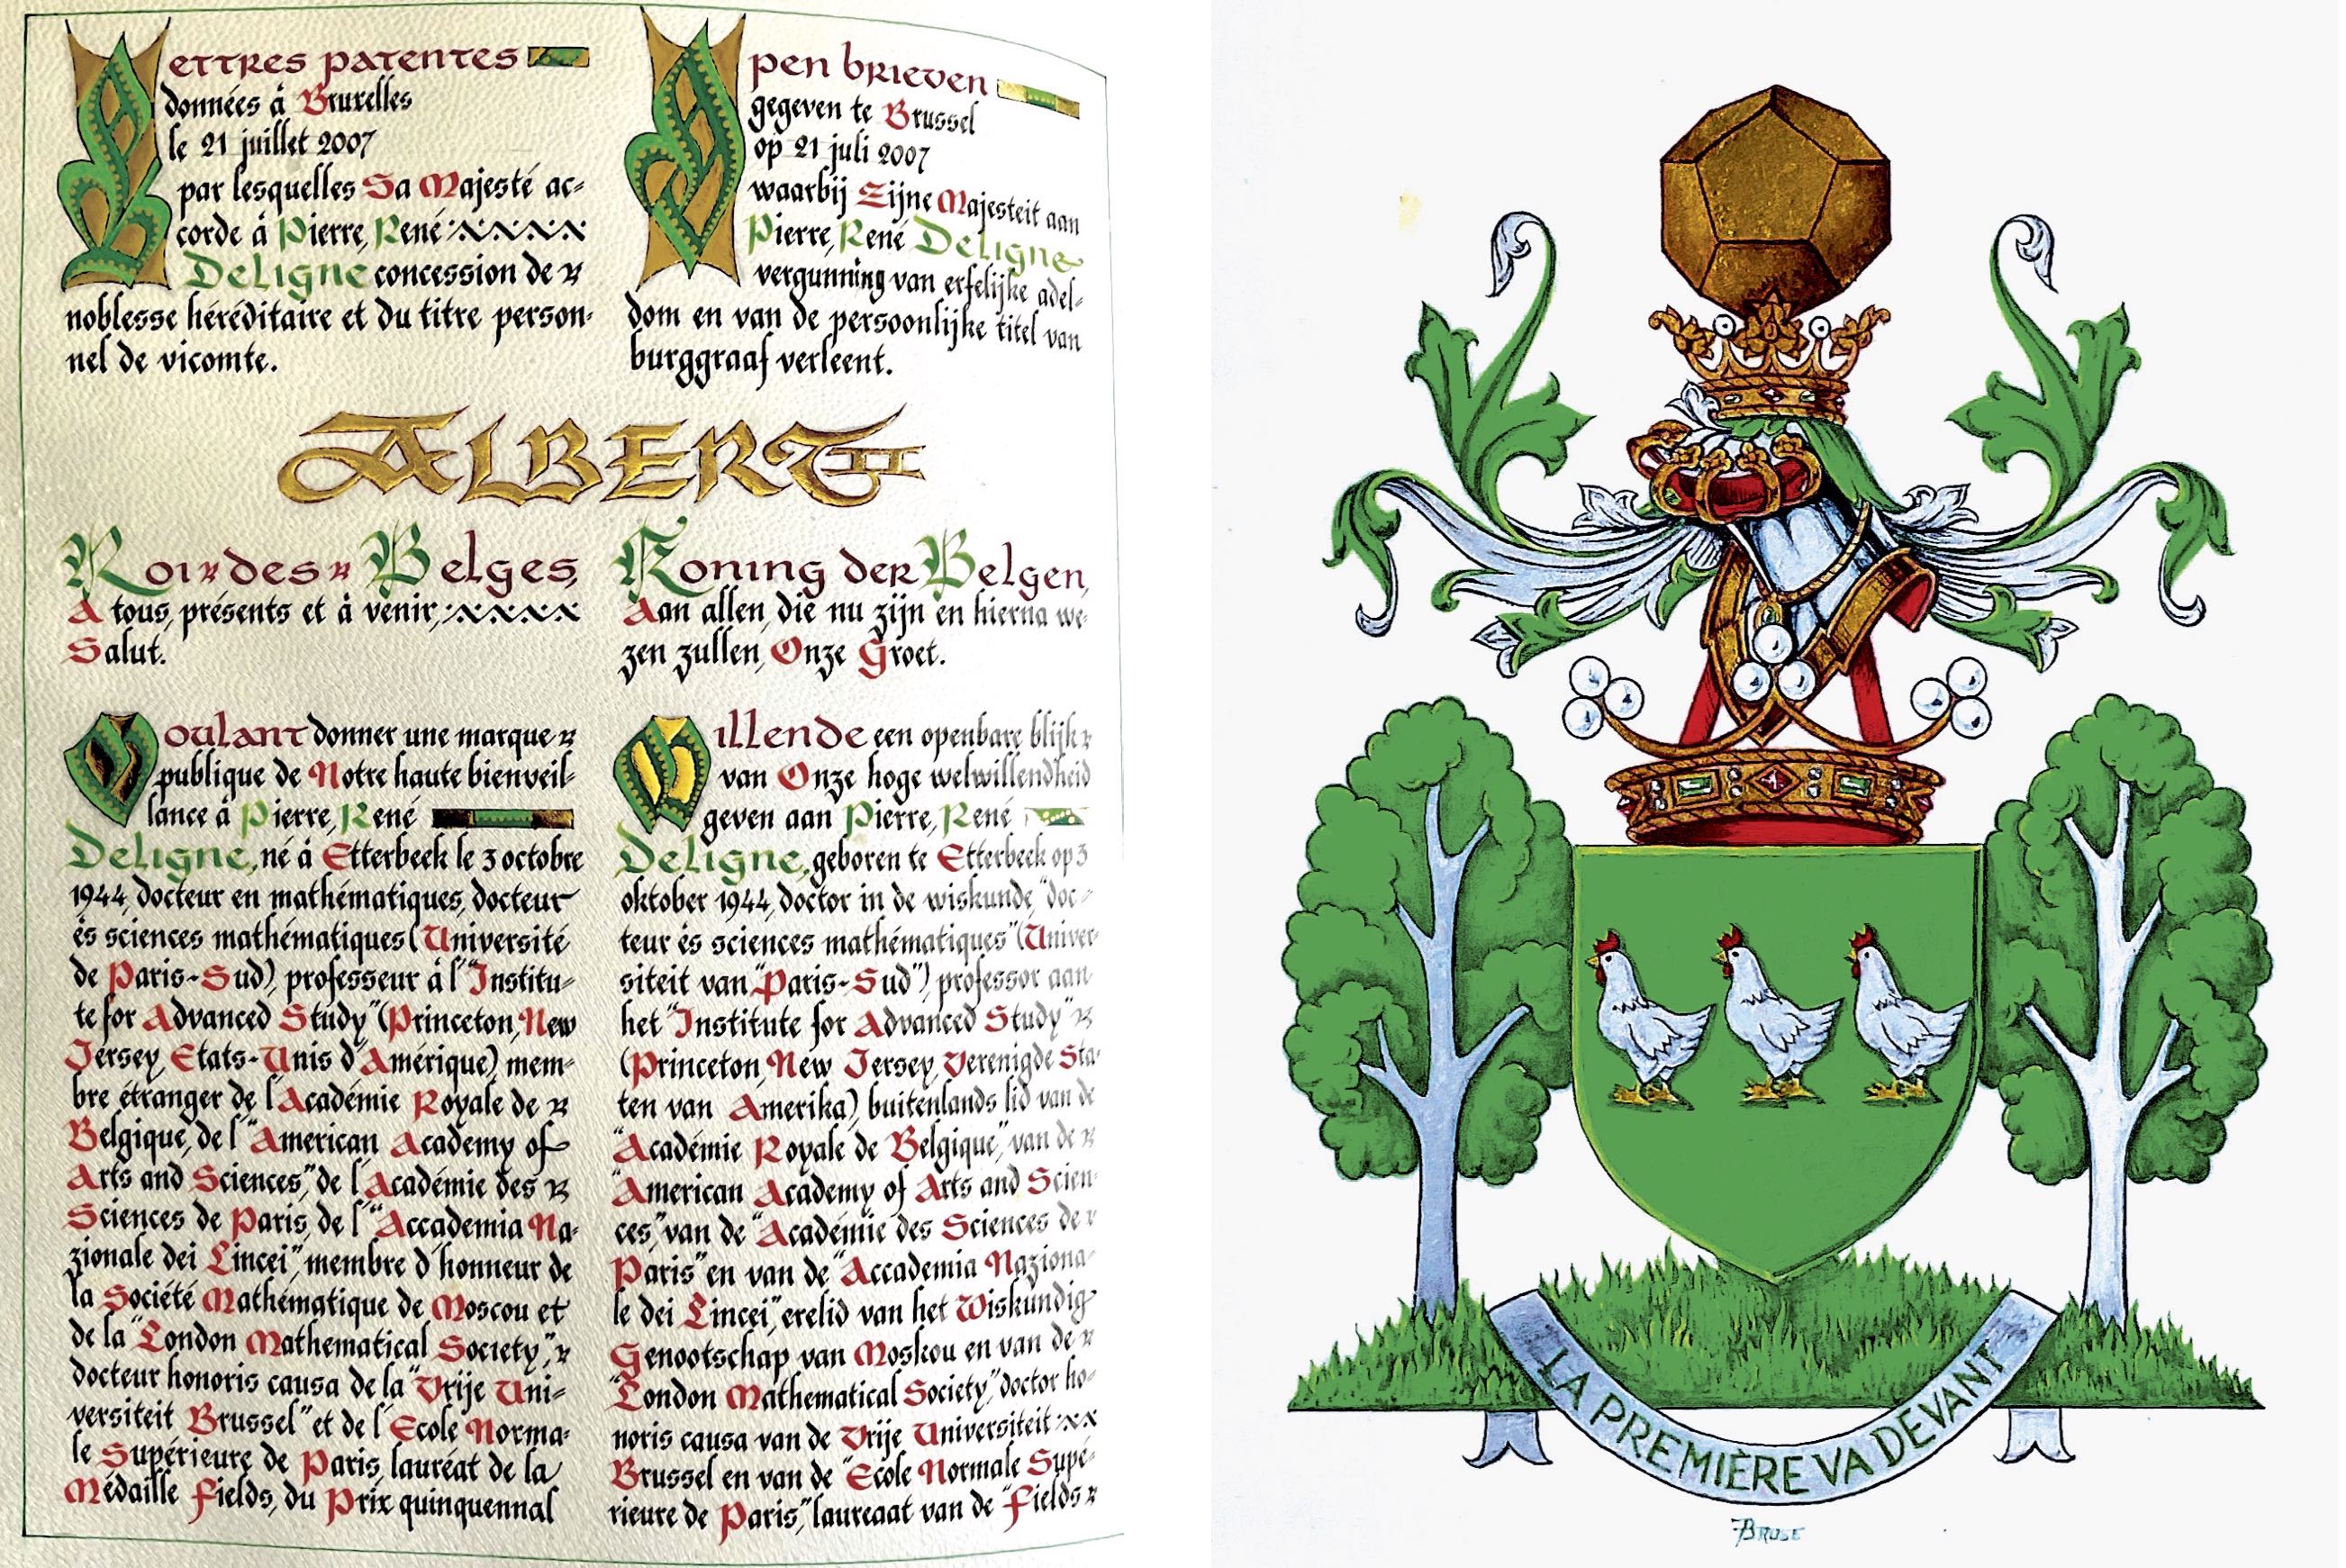 Lettres patentes
données à Bruxelles
le 21 juillet 2007
par lesquelles Sa Majesté ac-
corde à Pierre, René
Deligne concession de
noblesse héréditaire et du titre person-
nel de vicomte.
Open brieven
gegeven te Brussel
op 21 juli 2007
waarbij Zijne Majesteit aan
Pierre, René Deligne
vergunning van erfelijke adel-
dom en van de persoonlijke titel van
burggraaf verleent.
ALBERT II
Roi des Belges,
A tous, présents et à venir,
Salut.
Koning der Belgen,
Aan allen, die nu zijn en hierna we-
zen zullen, Onze Groet.
Voulant donner une marque
publique de Notre haute bienveil-
lance à Pierre, René
Deligne, né à Etterbeek le 3 octobre
1944, docteur en mathématiques, docteur
ès sciences mathématiques (Université
de Paris-Sud), professeur à l'"Institu-
te for Advanced Study" (Princeton, New
Jersey, Etats-Unis d'Amérique), mem-
bre étranger de l'Académie Royale de
Belgique, de l'"American Academy of
Arts and Sciences", de l'Académie des
Sciences de Paris, de l'"Accademia Na-
zionale dei Lincei", membre d'honneur de
la Société Mathématique de Moscou et
de la "London Mathematical Society",
docteur honoris causa de la "Vrije Uni-
versiteit Brussel" et de l'Ecole Norma-
le Supérieure de Paris, lauréat de la
Médaille Fields, du Prix quinquennal
Willende een openbare blijk
van Onze hoge welwillendheid
geven aan Pierre, René
Deligne, geboren te Etterbeek op 3
oktober 1944, doctor in de wiskunde, "doc-
teur ès sciences mathématiques" (Univer-
siteit van "Paris-Sud") professor aan
het "Institute for Advanced Study"
(Princeton, New Jersey, Verenigde Sta-
ten van Amerika), buitenlands lid van de
"Académie Royale de Belgique", van de
"American Academy of Arts and Scien-
ces", van de "Académie des Sciences de
Paris" en van de "Accademia Naziona-
le dei Lincei", erelid van het Wiskundig
Genootschap van Moskou en van de
"London Mathematical Society", doctor ho-
noris causa van de Vrije Universiteit
Brussel en van de "Ecole Normale Supé-
rieure de Paris", laureaat van de "Fields
LA PREMIÈRE VA DEVANT